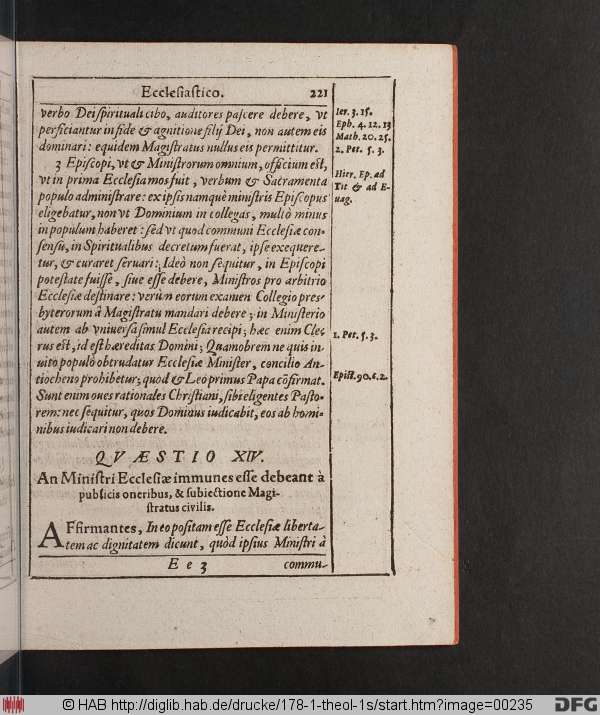 Ecclesiastico. 221
verbo Dei spirituali cibo, auditores pascere debere, vt
perficiantur in fide & agnitione filij Dei, non autem eis
dominari: equidem Magistratus nullus eis permittitur.
3 Episcopi, vt & Ministrorum omnium, officium est,
vt in prima Ecclesia mos fuit, verbum & Sacramenta
populo administrare: ex ipsis namque ministris Episcopus
eligebatur, non vt Dominium in collegas, multò minus
in populum haberet: sed vt quod communi Ecclesiæ con-
sensu, in Spiritualibus decretum fuerat, ipse exequere-
tur, & curaret seruari: Ideò non sequitur, in Episcopi
potestate fuisse, siue esse debere, Ministros pro arbitrio
Ecclesiæ destinare: verùm eorum examen Collegio pres-
byterorum à Magistratu mandari debere; in Ministerio
autem ab vniuersa simul Ecclesia recipi; hæc enim Cle-
rus est, id est hæreditas Domini; Quamobrem ne quis in-
uito populo obtrudatur Ecclesiæ Minister, concilio An-
tiocheno prohibetur; quod & Leo primus Papa cõfirmat.
Sunt enim oues rationales Christiani, sibi eligentes Pasto-
rem: nec sequitur, quos Dominus iudicabit, eos ab homi-
nibus iudicari non debere.
QVÆSTIO XIV.
An Ministri Ecclesiæ immunes esse debeant à
publicis oneribus, & subiectione Magi-
stratus civilis.
AFfirmantes, In eo positam esse Ecclesiæ liberta-
tem ac dignitatem dicunt, quòd ipsius Ministri à
E e 3 commu-
Ier. 3. 15.
Eph. 4. 12. 13
Math. 20. 25.
2. Pet. 5. 3.
Hier. Ep. ad
Tit & ad E-
uag.
1. Pet. 5. 3.
Epist. 90. c. 2.
© HAB http://diglib.hab.de/drucke/178-1-theol-1s/start.htm?image=00235
DFG